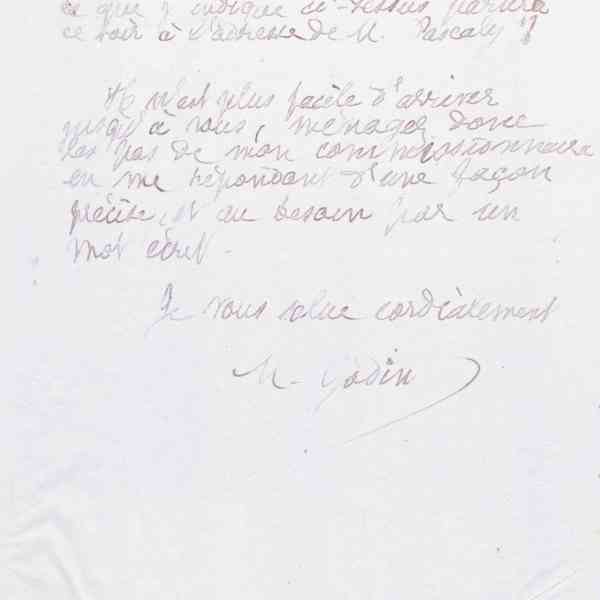 ce que j'indique ci-dessus partira
ce soir à l'adresse de M. Pascaly ?
Il n'est plus facile d'arriver
jusqu'à vous, ménagez donc
les pas de mon commissionnaire
en me répondant d'une façon
précise, et au besoin par un
mot écrit.
Je vous salue cordialement
M. Godin